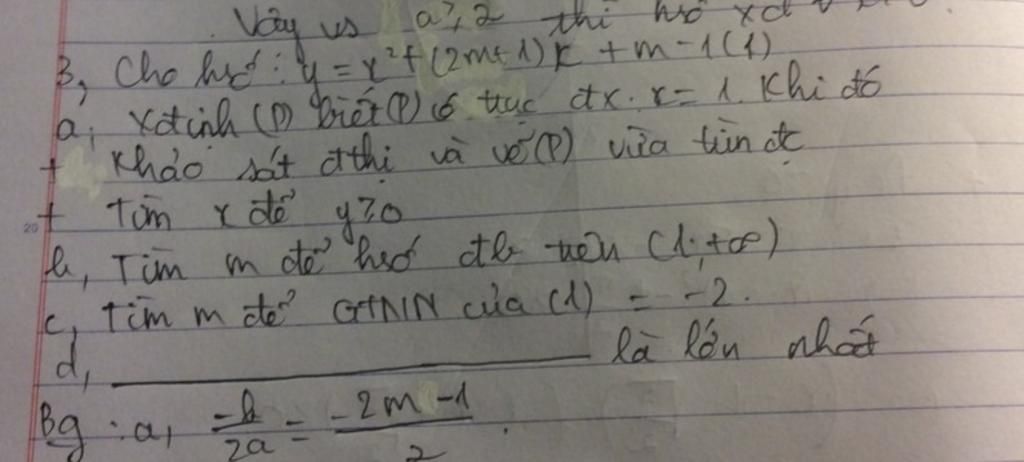 Vậy vs a ≥ 2 thì hsố xđ
3, Cho hsố : y = x² + (2m+1)x + m - 1 (1)
a, Xđịnh (P) biết (P) có trục đx. x = 1. Khi đó
+ Khảo sát đthị và vẽ (P) vừa tìm đc
+ Tìm x để y ≥ 0
b, Tìm m để hsố đb trên (1; +∞)
c, Tìm m để GTNN của (1) = -2.
d, ____________ là lớn nhất
Bg : a, -b/2a = -2m - 1/2 .
20